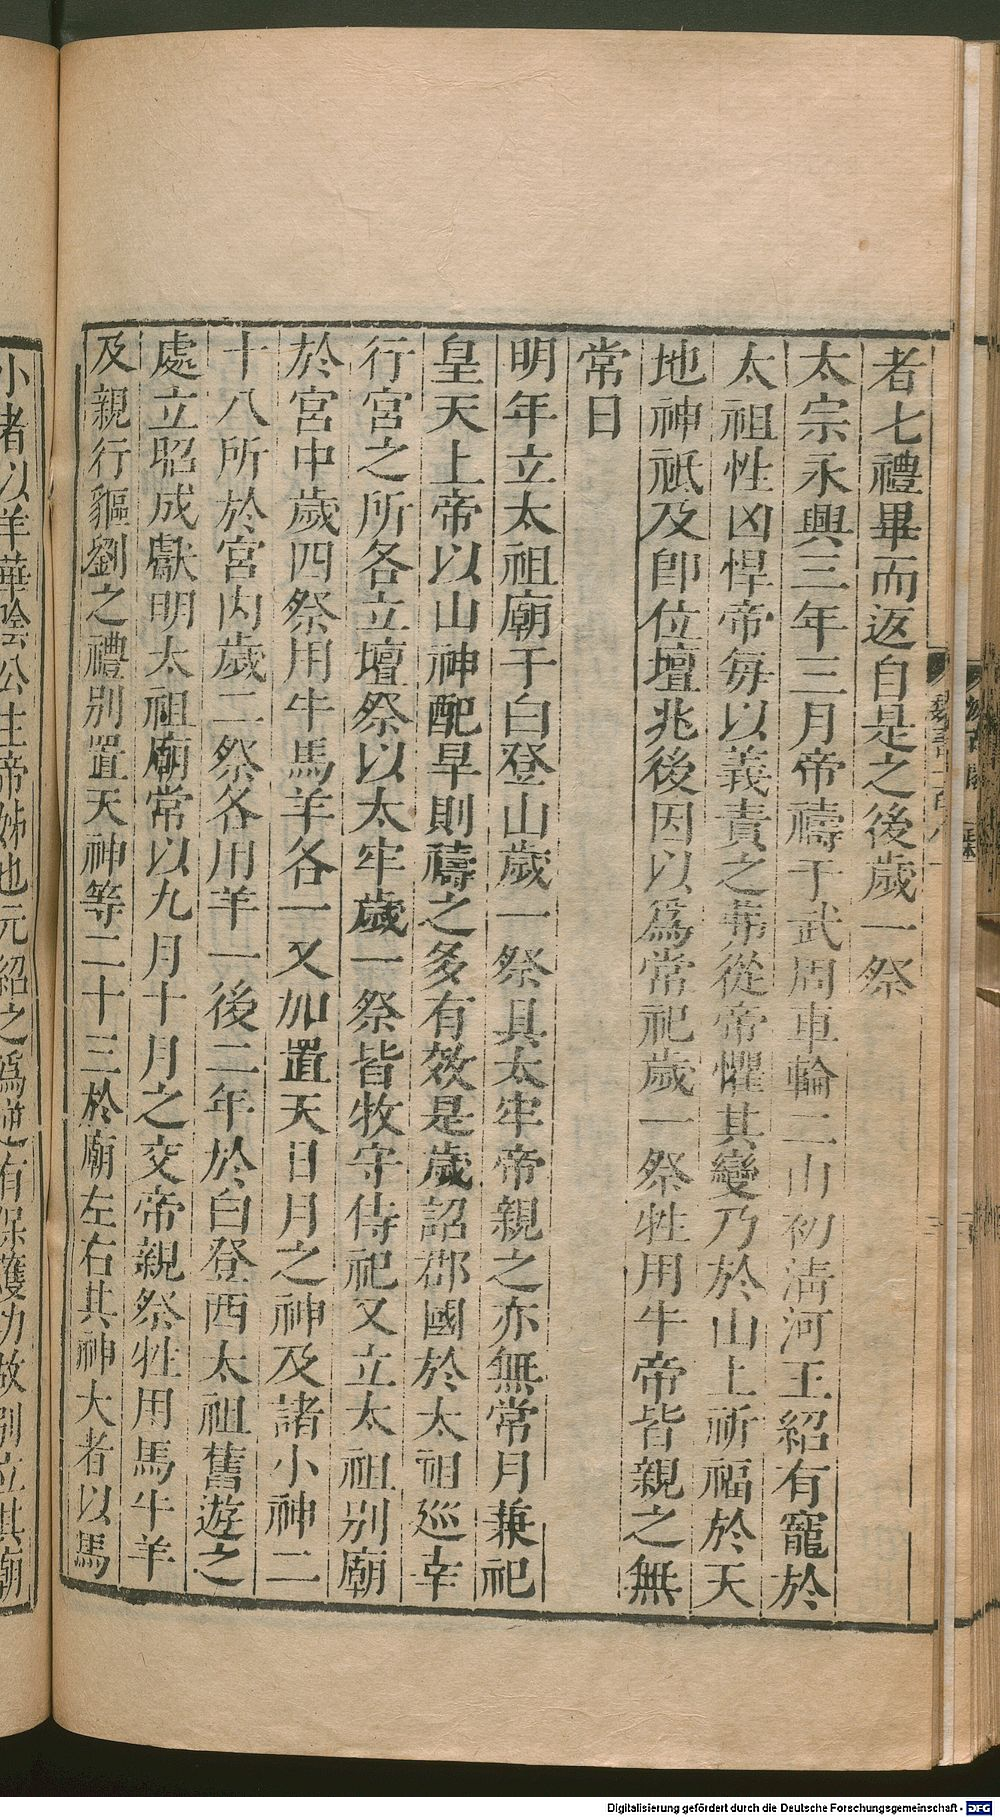 者七禮畢而返自是之後歲一祭
太宗永興三年三月帝禱于武周車輪二山初清河王紹有寵於
太祖性凶悍帝每以義責之弗從帝懼其變乃於山上祈福於天
地神祇及卽位壇兆後因以爲常祀歲一祭牲用牛帝皆親之無
常日
明年立太祖廟于白登山歲一祭具太牢帝親之亦無常月兼祀
皇天上帝以山神配旱則禱之多有效是歲詔郡國於太祖巡幸
行宮之所各立壇祭以太牢歲一祭皆牧守侍祀又立太祖别廟
於宮中歲四祭用牛馬羊各一又加置天日月之神及諸小神二
十八所於宮内歲二祭各用羊一後二年於白登西太祖舊遊之
處立昭成獻明太祖廟常以九月十月之交帝親祭牲用馬牛羊
及親行貙劉之禮别置天神等二十三於廟左右其神大者以馬
小者以羊華陰公主帝姊也元紹之爲逆有保護功故别立其廟
Digitalisierung gefördert durch die Deutsche Forschungsgemeinschaft - DFG